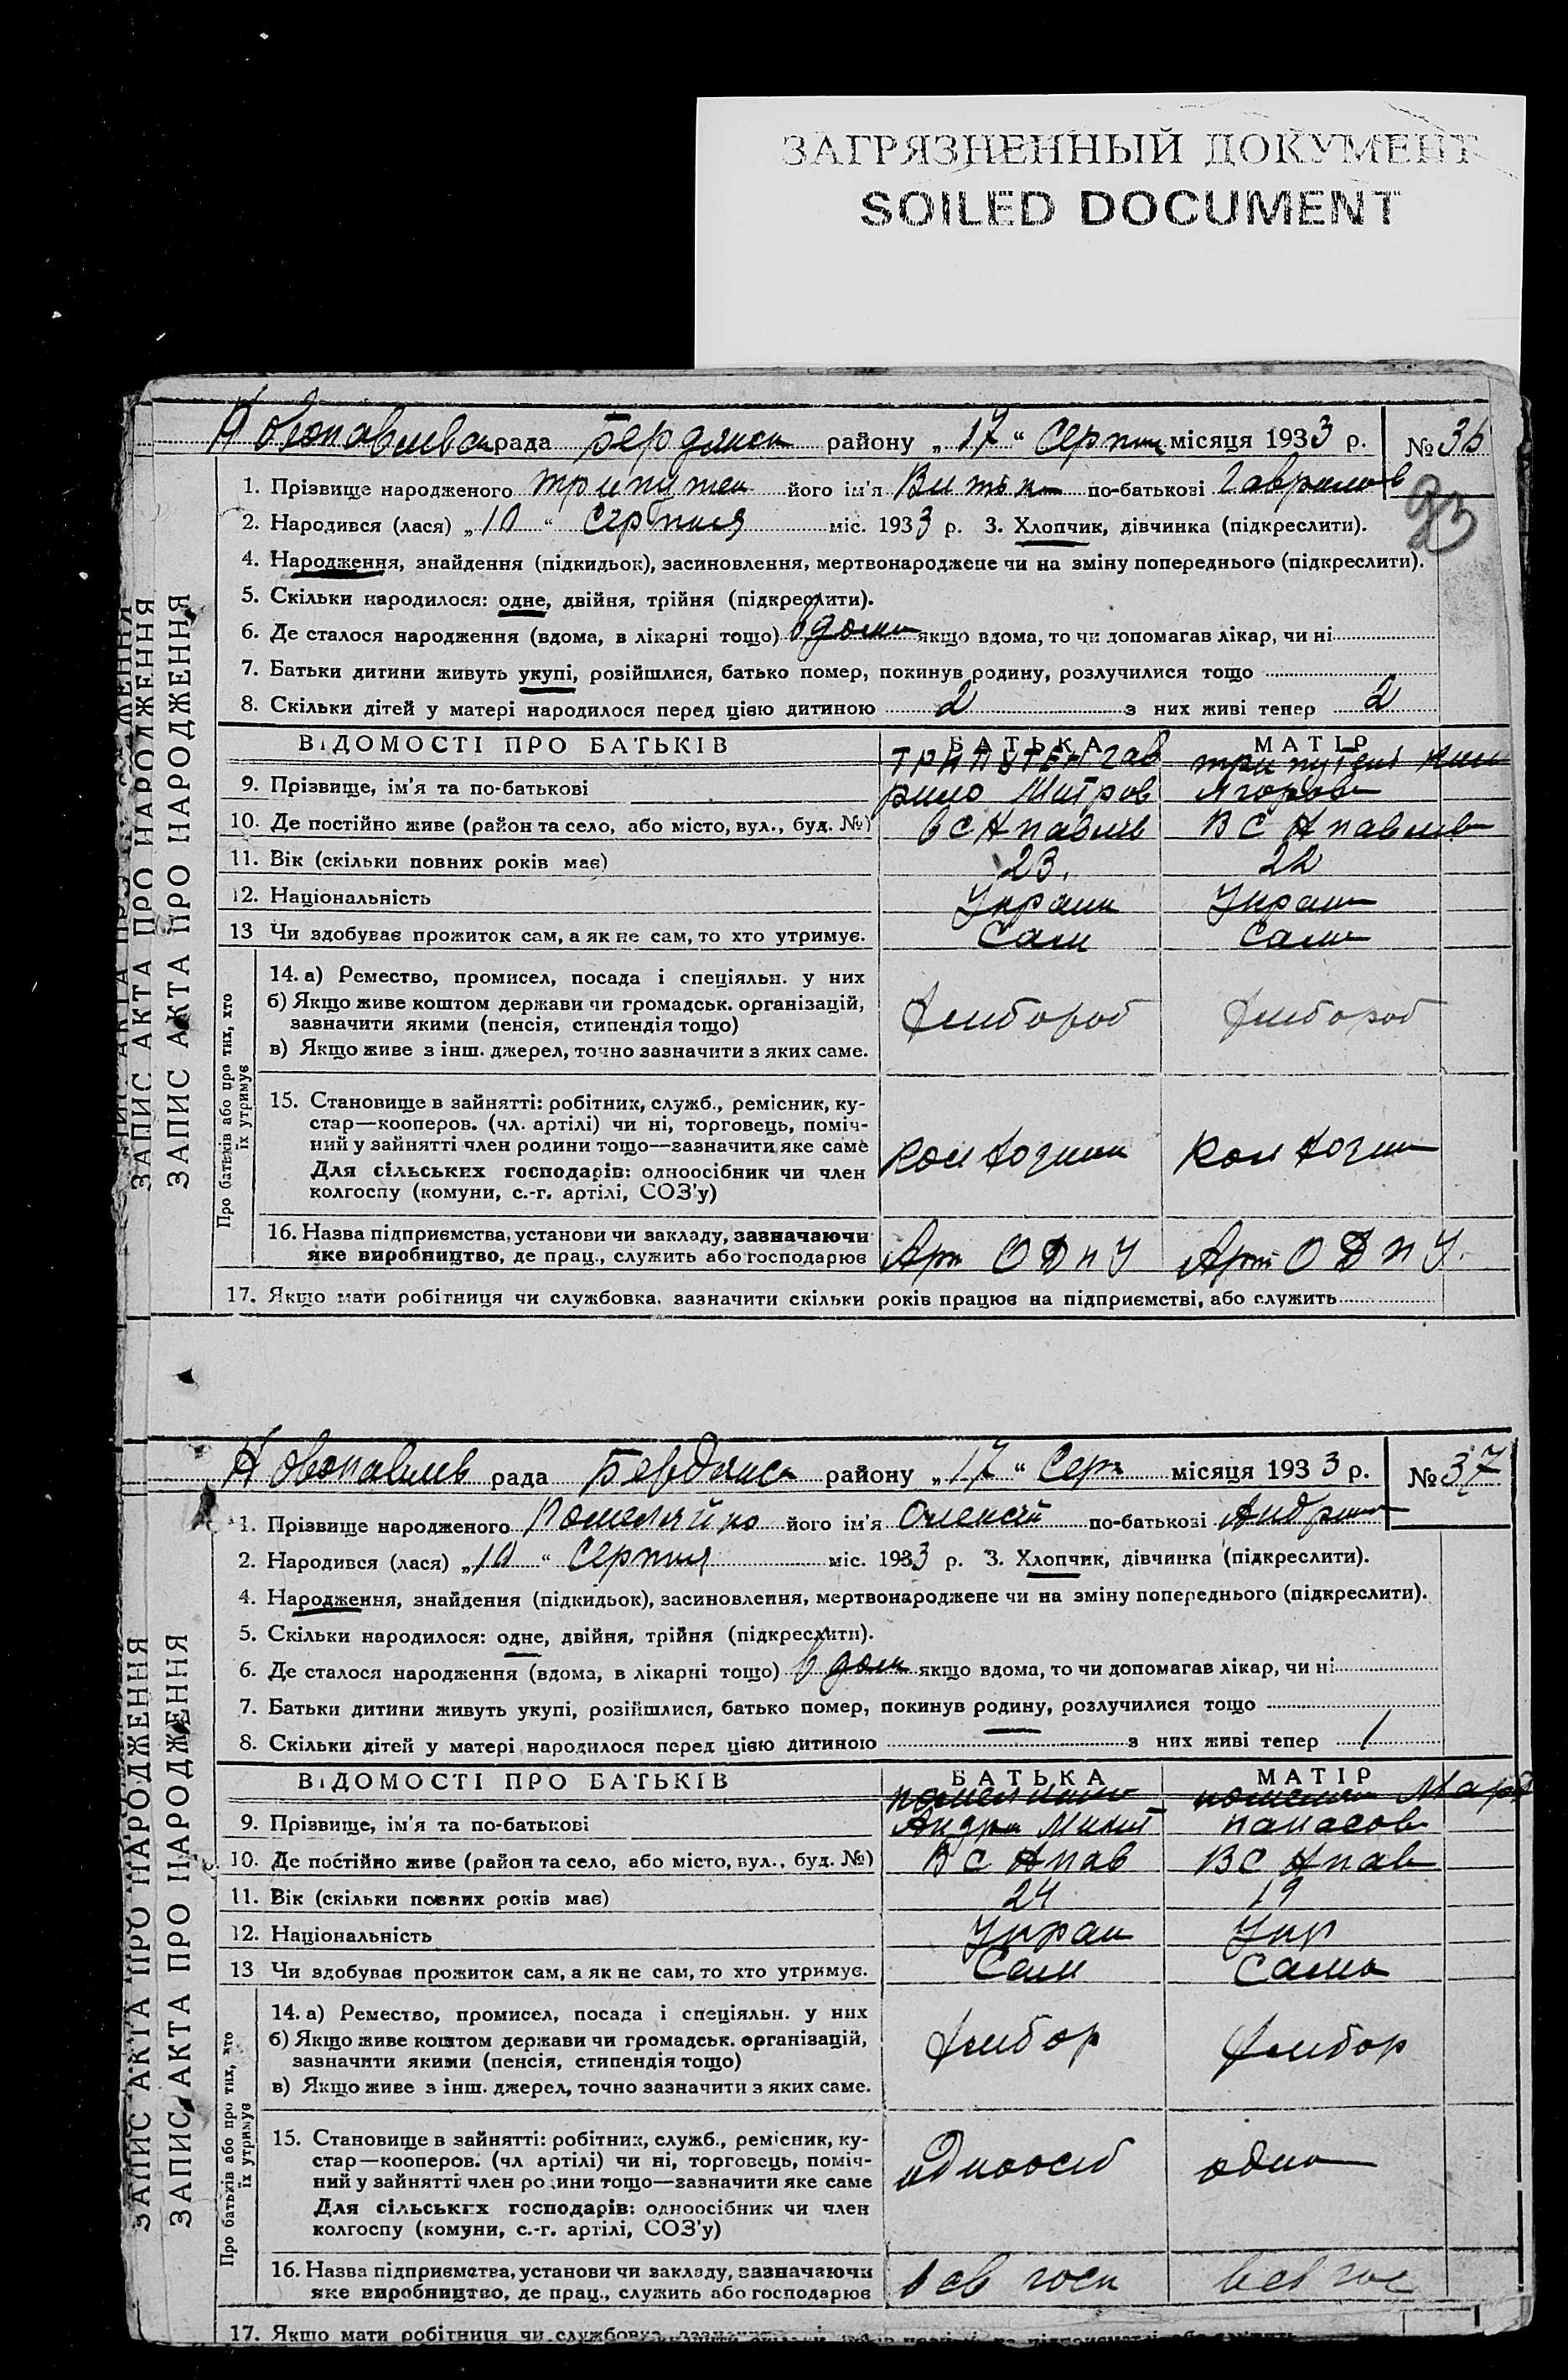 ЗАГРЯЗНЕННЫЙ ДОКУМЕНТ
SOILED DOCUMENT
рада Бердянськ району „17“ Серпня місяця 1933 р. №36
93
1. Прізвище народженого Трипутен його ім'я Витька по-батькові Гаврилов
2. Народився (лася) „10“ Серпня міс. 1933 р. 3. Хлопчик, дівчинка (підкреслити).
4. Народження, знайдення (підкидьок), засиновлення, мертвонароджене чи на зміну попереднього (підкреслити).
5. Скільки народилося: одне, двійня, трійня (підкреслити).
6. Де сталося народження (вдома, в лікарні тощо) вдома якщо вдома, то чи допомагав лікар, чи ні
7. Батьки дитини живуть укупі, розійшлися, батько помер, покинув родину, розлучилися тощо
8. Скільки дітей у матері народилося перед цією дитиною 2 з них живі тепер 2
ВІДОМОСТІ ПРО БАТЬКІВ БАТЬКА МАТІР
ТРИПУТЕН Гав
9. Прізвище, ім'я та по-батькові рило Митров
10. Де постійно живе (район та село, або місто, вул., буд. №) в с Н павлив В С Н павлив
11. Вік (скільки повних років має) 23. 22
12. Національність Украин Украин
13 Чи здобуває прожиток сам, а як не сам, то хто утримує. Сам Сама
Про батьків або про тих, хто їх утримує
14. а) Ремество, промисел, посада і спеціяльн. у них
б) Якщо живе коштом держави чи громадськ. організацій,
зазначити якими (пенсія, стипендія тощо) Хлибороб Хлибороб
в) Якщо живе з інш. джерел, точно зазначити з яких саме.
15. Становище в зайнятті: робітник, служб., ремісник, ку-
стар—кооперов. (чл. артілі) чи ні, торговець, поміч-
ний у зайнятті член родини тощо—зазначити яке саме
Для сільських господарів: одноосібник чи член
колгоспу (комуни, с.-г. артілі, СОЗ'у)
16. Назва підприємства, установи чи закладу, зазначаючи
яке виробництво, де прац., служить або господарює Арт ОДПУ Арт ОДПУ.
17. Якщо мати робітниця чи службовка, зазначити скільки років працює на підприємстві, або служить
ЗАПИС АКТА ПРО НАРОДЖЕННЯ
ЗАПИС АКТА ПРО НАРОДЖЕННЯ
Новопавлив рада Бердянськ району „17“ Серп місяця 1933 р. №37
1. Прізвище народженого його ім'я Олексій по-батькові Андрие
2. Народився (лася) „10“ Серпня міс. 1933 р. 3. Хлопчик, дівчинка (підкреслити).
4. Народження, знайдення (підкидьок), засиновлення, мертвонароджене чи на зміну попереднього (підкреслити).
5. Скільки народилося: одне, двійня, трійня (підкреслити).
6. Де сталося народження (вдома, в лікарні тощо) вдом якщо вдома, то чи допомагав лікар, чи ні
7. Батьки дитини живуть укупі, розійшлися, батько помер, покинув родину, розлучилися тощо
8. Скільки дітей у матері народилося перед цією дитиною з них живі тепер 1
ВІДОМОСТІ ПРО БАТЬКІВ БАТЬКА МАТІР
9. Прізвище, ім'я та по-батькові Андри Микит панасов
10. Де постійно живе (район та село, або місто, вул., буд. №) В С Н пав В С Н пав
11. Вік (скільки повних років має) 24 19
12. Національність Украи Укр
13 Чи здобуває прожиток сам, а як не сам, то хто утримує. Сам Сама
Про батьків або про тих, хто їх утримує
14. а) Ремество, промисел, посада і спеціяльн. у них
б) Якщо живе коштом держави чи громадськ. організацій,
зазначити якими (пенсія, стипендія тощо) Хлибор Хлибор
в) Якщо живе з інш. джерел, точно зазначити з яких саме.
15. Становище в зайнятті: робітник, служб., ремісник, ку-
стар—кооперов. (чл артілі) чи ні, торговець, поміч-
ний у зайнятті член родини тощо—зазначити яке саме одноосиб одно
Для сільських господарів: одноосібник чи член
колгоспу (комуни, с.-г. артілі, СОЗ'у)
16. Назва підприємства, установи чи закладу, зазначаючи
яке виробництво, де прац., служить або господарює
17. Якщо мати робітниця чи службовка
ЗАПИС АКТА ПРО НАРОДЖЕННЯ
ЗАПИС АКТА ПРО НАРОДЖЕННЯ